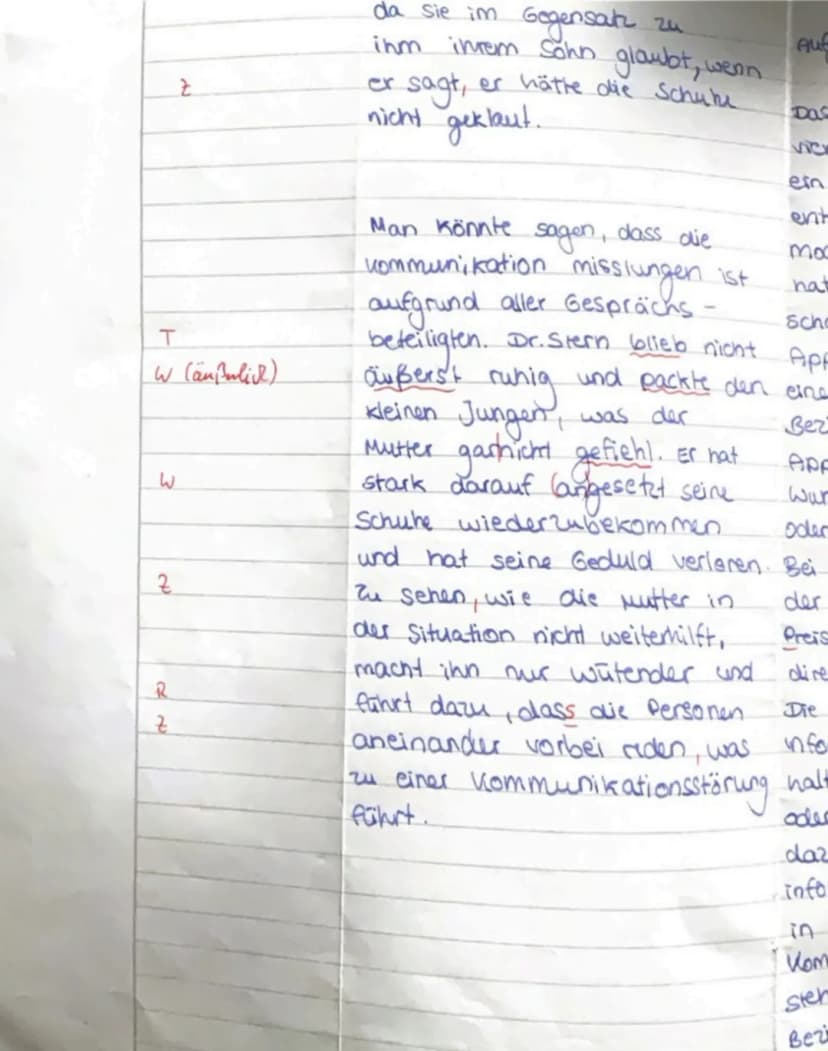 da sie im Gegensatz zu
ihm ihrem Sohn glaubt, wenn
Z er sagt, er hätte die Schuhe
nicht geklaut.
Man könnte sagen, dass die
Kommunikation misslungen ist
aufgrund aller Gesprächs-
T beteiligten. Dr. Stern blieb nicht
W (äußerlich) äußerst ruhig und packte den
kleinen Jungen, was der
Mutter garnicht gefiehl. Er hat
W stark darauf angesetzt seine
Schuhe wiederzubekommen
und hat seine Geduld verloren.
Z Zu sehen, wie die Mutter in
der Situation nicht weiterhilft,
macht ihn nur wütender und
R führt dazu, dass die Personen
Z aneinander vorbei reden, was
zu einer Kommunikationsstörung
führt.
Das
ein
hat
eine
oder
Bei
der
Preis
Die
oder
in